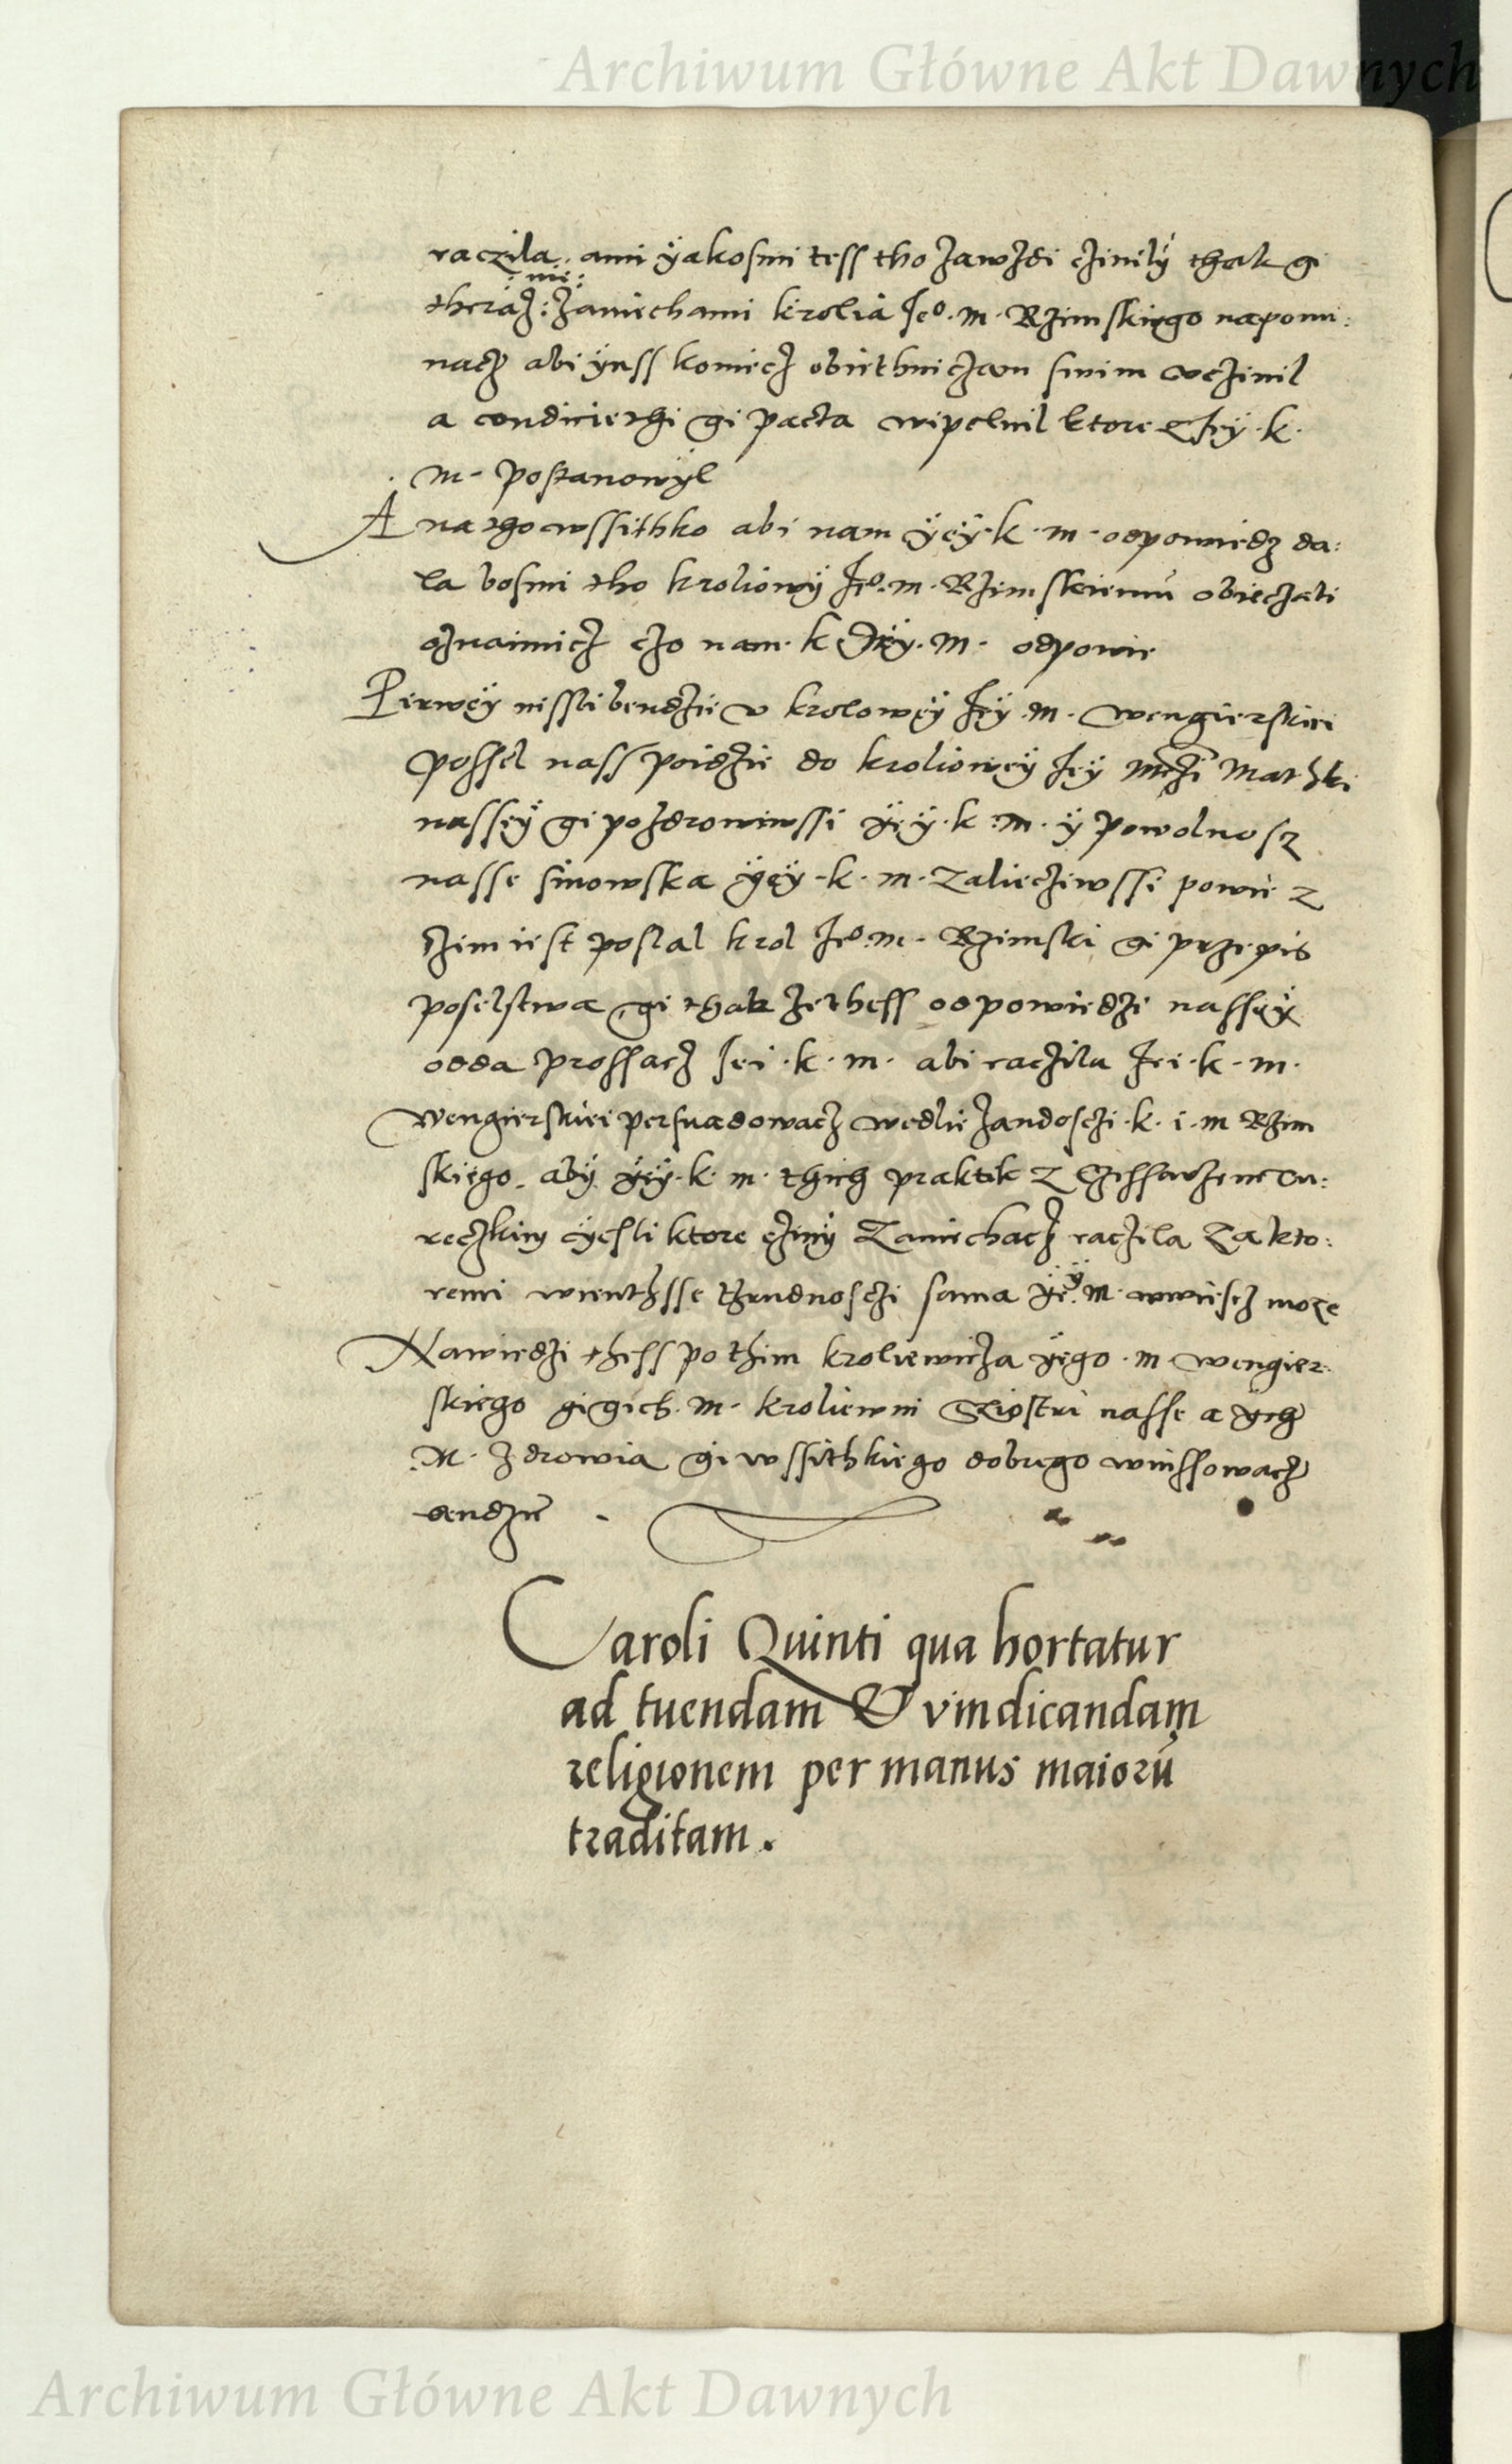 Archiwum Główne Akt Dawnych
raczila. ami ÿakosmi tess tho zawzdi czinilÿ thak gi
:nie:
theraz: zaniechami krolia Je⁰. m. Rzimskiego napomi:
nacz abi ÿuss koniecz obiethniczam swim vczinil
a condicie thi gi pacta wipelnil ktore z Jeÿ. k.
m. postanowÿl
A na tho wssithko abi nam ÿeÿ. k. m. odpowiedz da:
la bosmi tho kroliowÿ Je⁰. m. Rzimskiemu obieczali
oznaimicz czo nam. k Jeÿ. m. odpowie
Pierwëÿ nissli bendzie v krolowëÿ Jeÿ. m. wengierskiei
possel nass poidzie do kroliowëÿ Jeÿ mczi Mathki
nassëÿ gi pozdrowiwssi ÿeÿ. k. m. ÿ powolnosz
nasse sinowska ÿeÿ. k. m. zalieciwssi powie z
czim iest poslal krol Je⁰. m. Rzimski gi przepis
poselstwa gi thak ze thess odpowiedzi nassëÿ
odda prossacz Jei. k. m. abi raczila Jei. k. m.
wengierskiei persuadowacz wedlie zandosczi. k. i. m Rzim
skiego. abÿ ÿeÿ. k. m. thich praktik z Cziessarzem Tu:
reczkim ÿesli ktore czinÿ zaniechacz raczila za kto:
remi wienthsse thrudnosczi sama ÿeÿ. m. wwiescz moze
Nawiedzi thess pothim kroliewicza ÿego. m wengier:
skiego gi gich. m. kroliewni Siostri nasse a ÿch
M. zdrowia gi wssithkiego dobrego winssowacz
bendzie.
Caroli Quinti qua hortatur
ad tuendam & vindicandam
religionem per manus maiorū
traditam.
Archiwum Główne Akt Dawnych